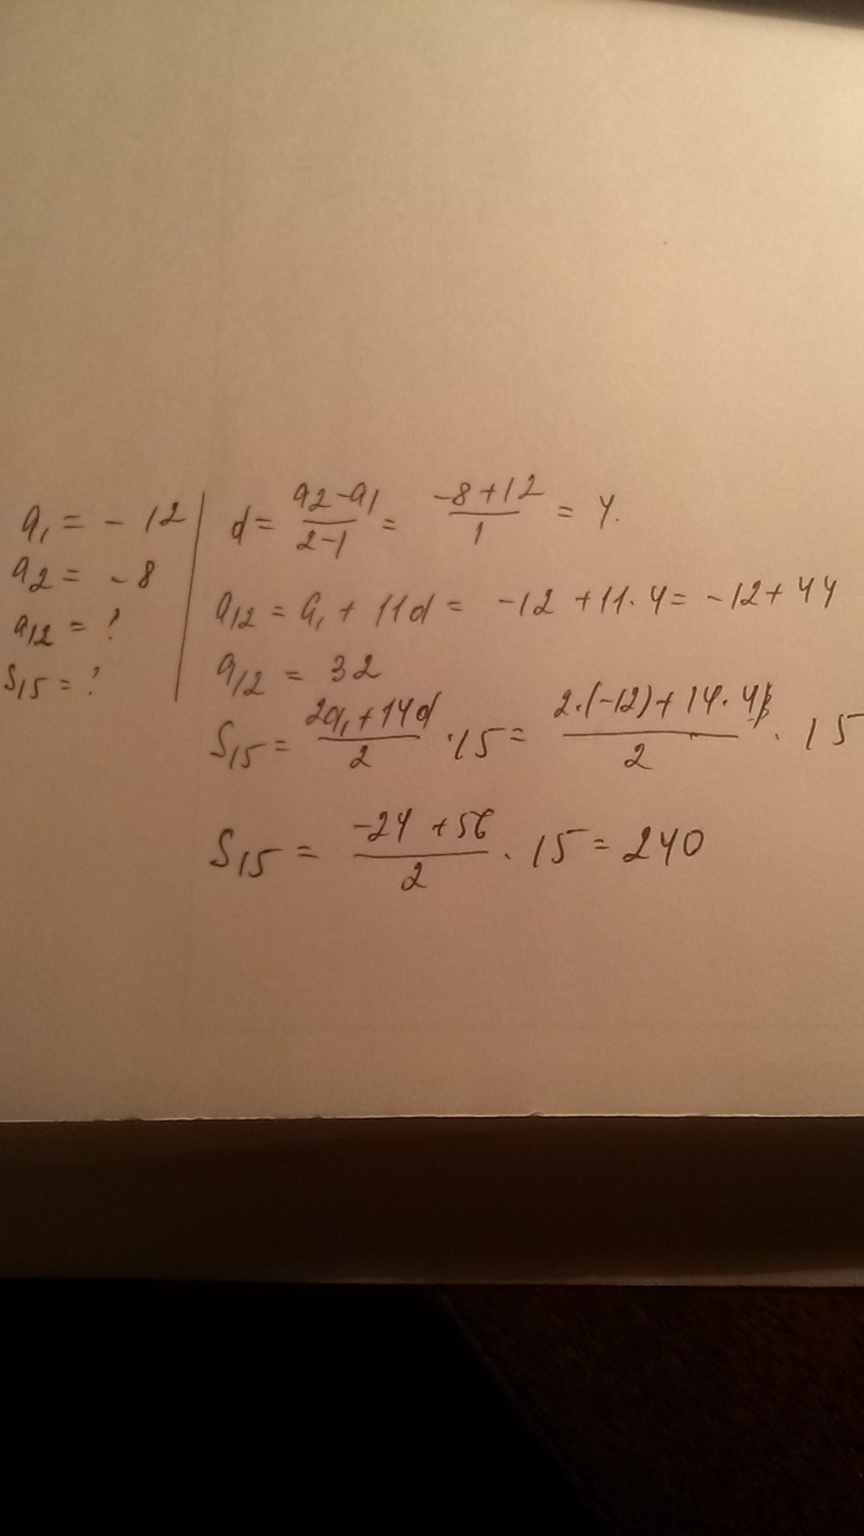 a₁ = - 12
a₂ = - 8
a₁₂ = ?
S₁₅ = ?
d = (a₂ - a₁)/(2-1) = (-8+12)/1 = 4.
a₁₂ = a₁ + 11d = -12 + 11·4 = -12 + 44
a₁₂ = 32
S₁₅ = (2a₁ + 14d)/2 · 15 = (2·(-12) + 14·4)/2 · 15
S₁₅ = (-24 + 56)/2 · 15 = 240